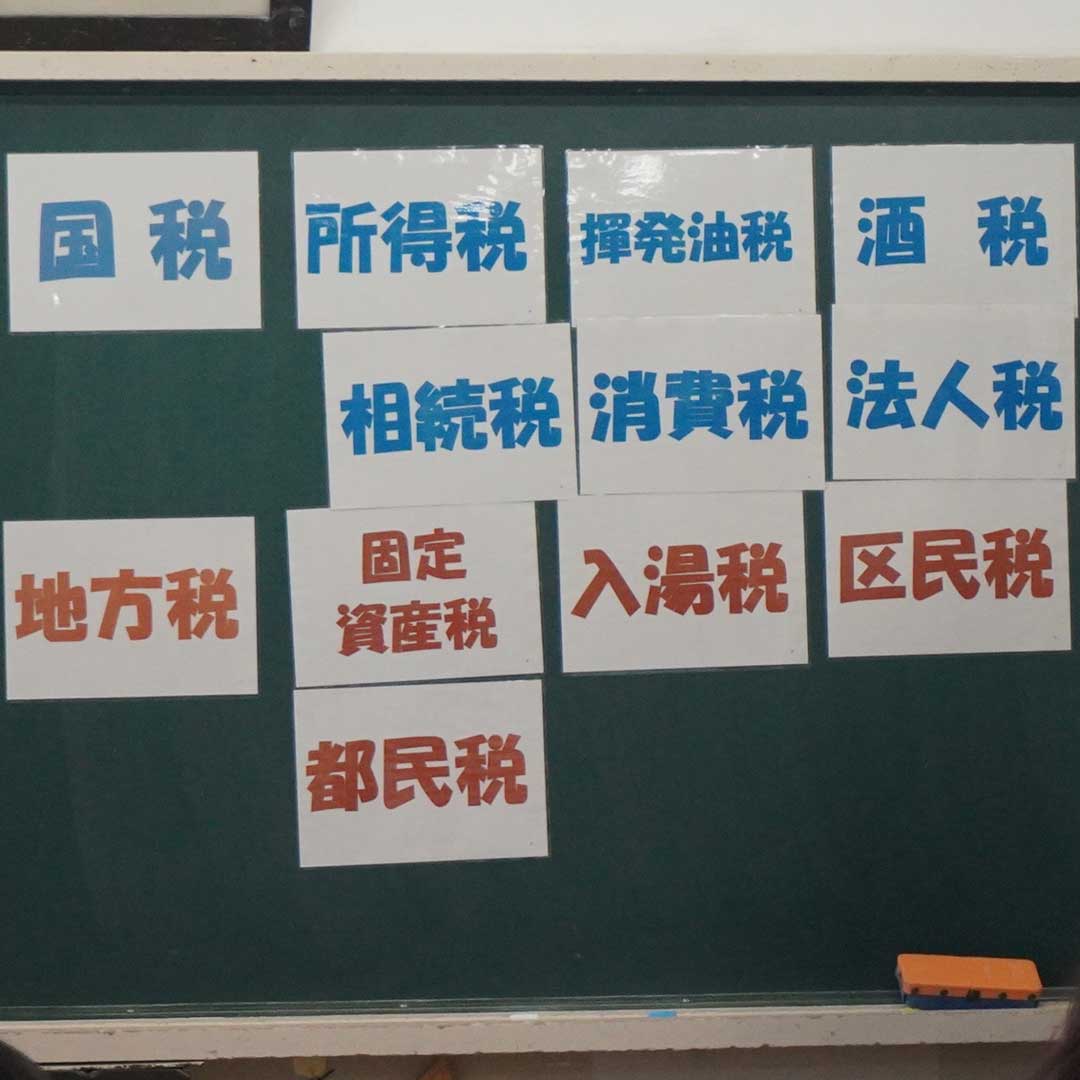 国税
所得税
揮発油税
酒税
相続税
消費税
法人税
地方税
固定
資産税
入湯税
区民税
都民税